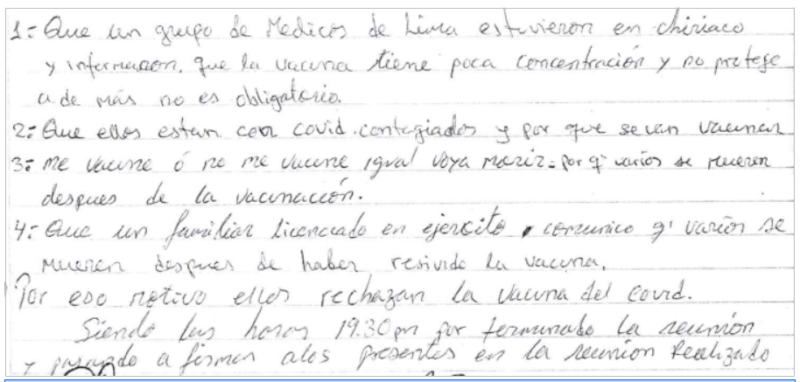 1= Que un grupo de Medicos de Lima estuvieron en chiriaco
y informaron. que la vacuna tiene poca concentración y no protege
a de más no es obligatorio.
2= Que ellos estan con covid. contagiados y por que se van vacunar
3= me vacune ó no me vacune igual voy a morir. por q' varios se mueren
despues de la vacunacción.
4= Que un familiar licenciado en ejercito, comunico q' varios se
mueren despues de haber resivido la vacuna.
Por eso motivo ellos rechazan la vacuna del covid.
Siendo las horas 19.30 pm por terminado la reunión
y pasando a firmar a los presentes en la reunion Realizado